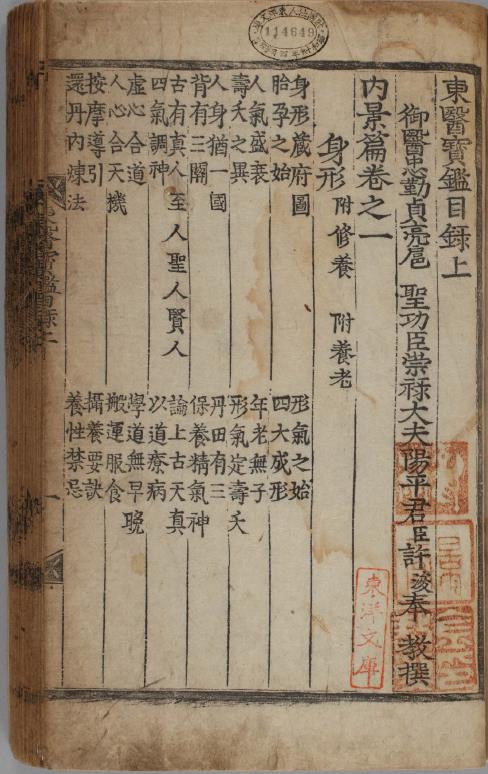 東醫寶鑑目録上
御醫忠勤貞亮扈 聖功臣崇祿大夫陽平君臣許浚奉 教撰
内景篇卷之一
身形 附修養 附養老
身形蔵府圖
形氣之始
胎孕之始
四大成形
人氣盛衰
年老無子
壽夭之異
形氣定壽夭
人身猶一國
丹田有三
背有三關
保養精氣神
古有真人至人聖人賢人
論上古天真
四氣調神
以道療病
虚心合道
學道無早晚
人心合天機
搬運服食
按摩導引
攝養要訣
還丹内煉法
養性禁忌
114649
東洋文庫